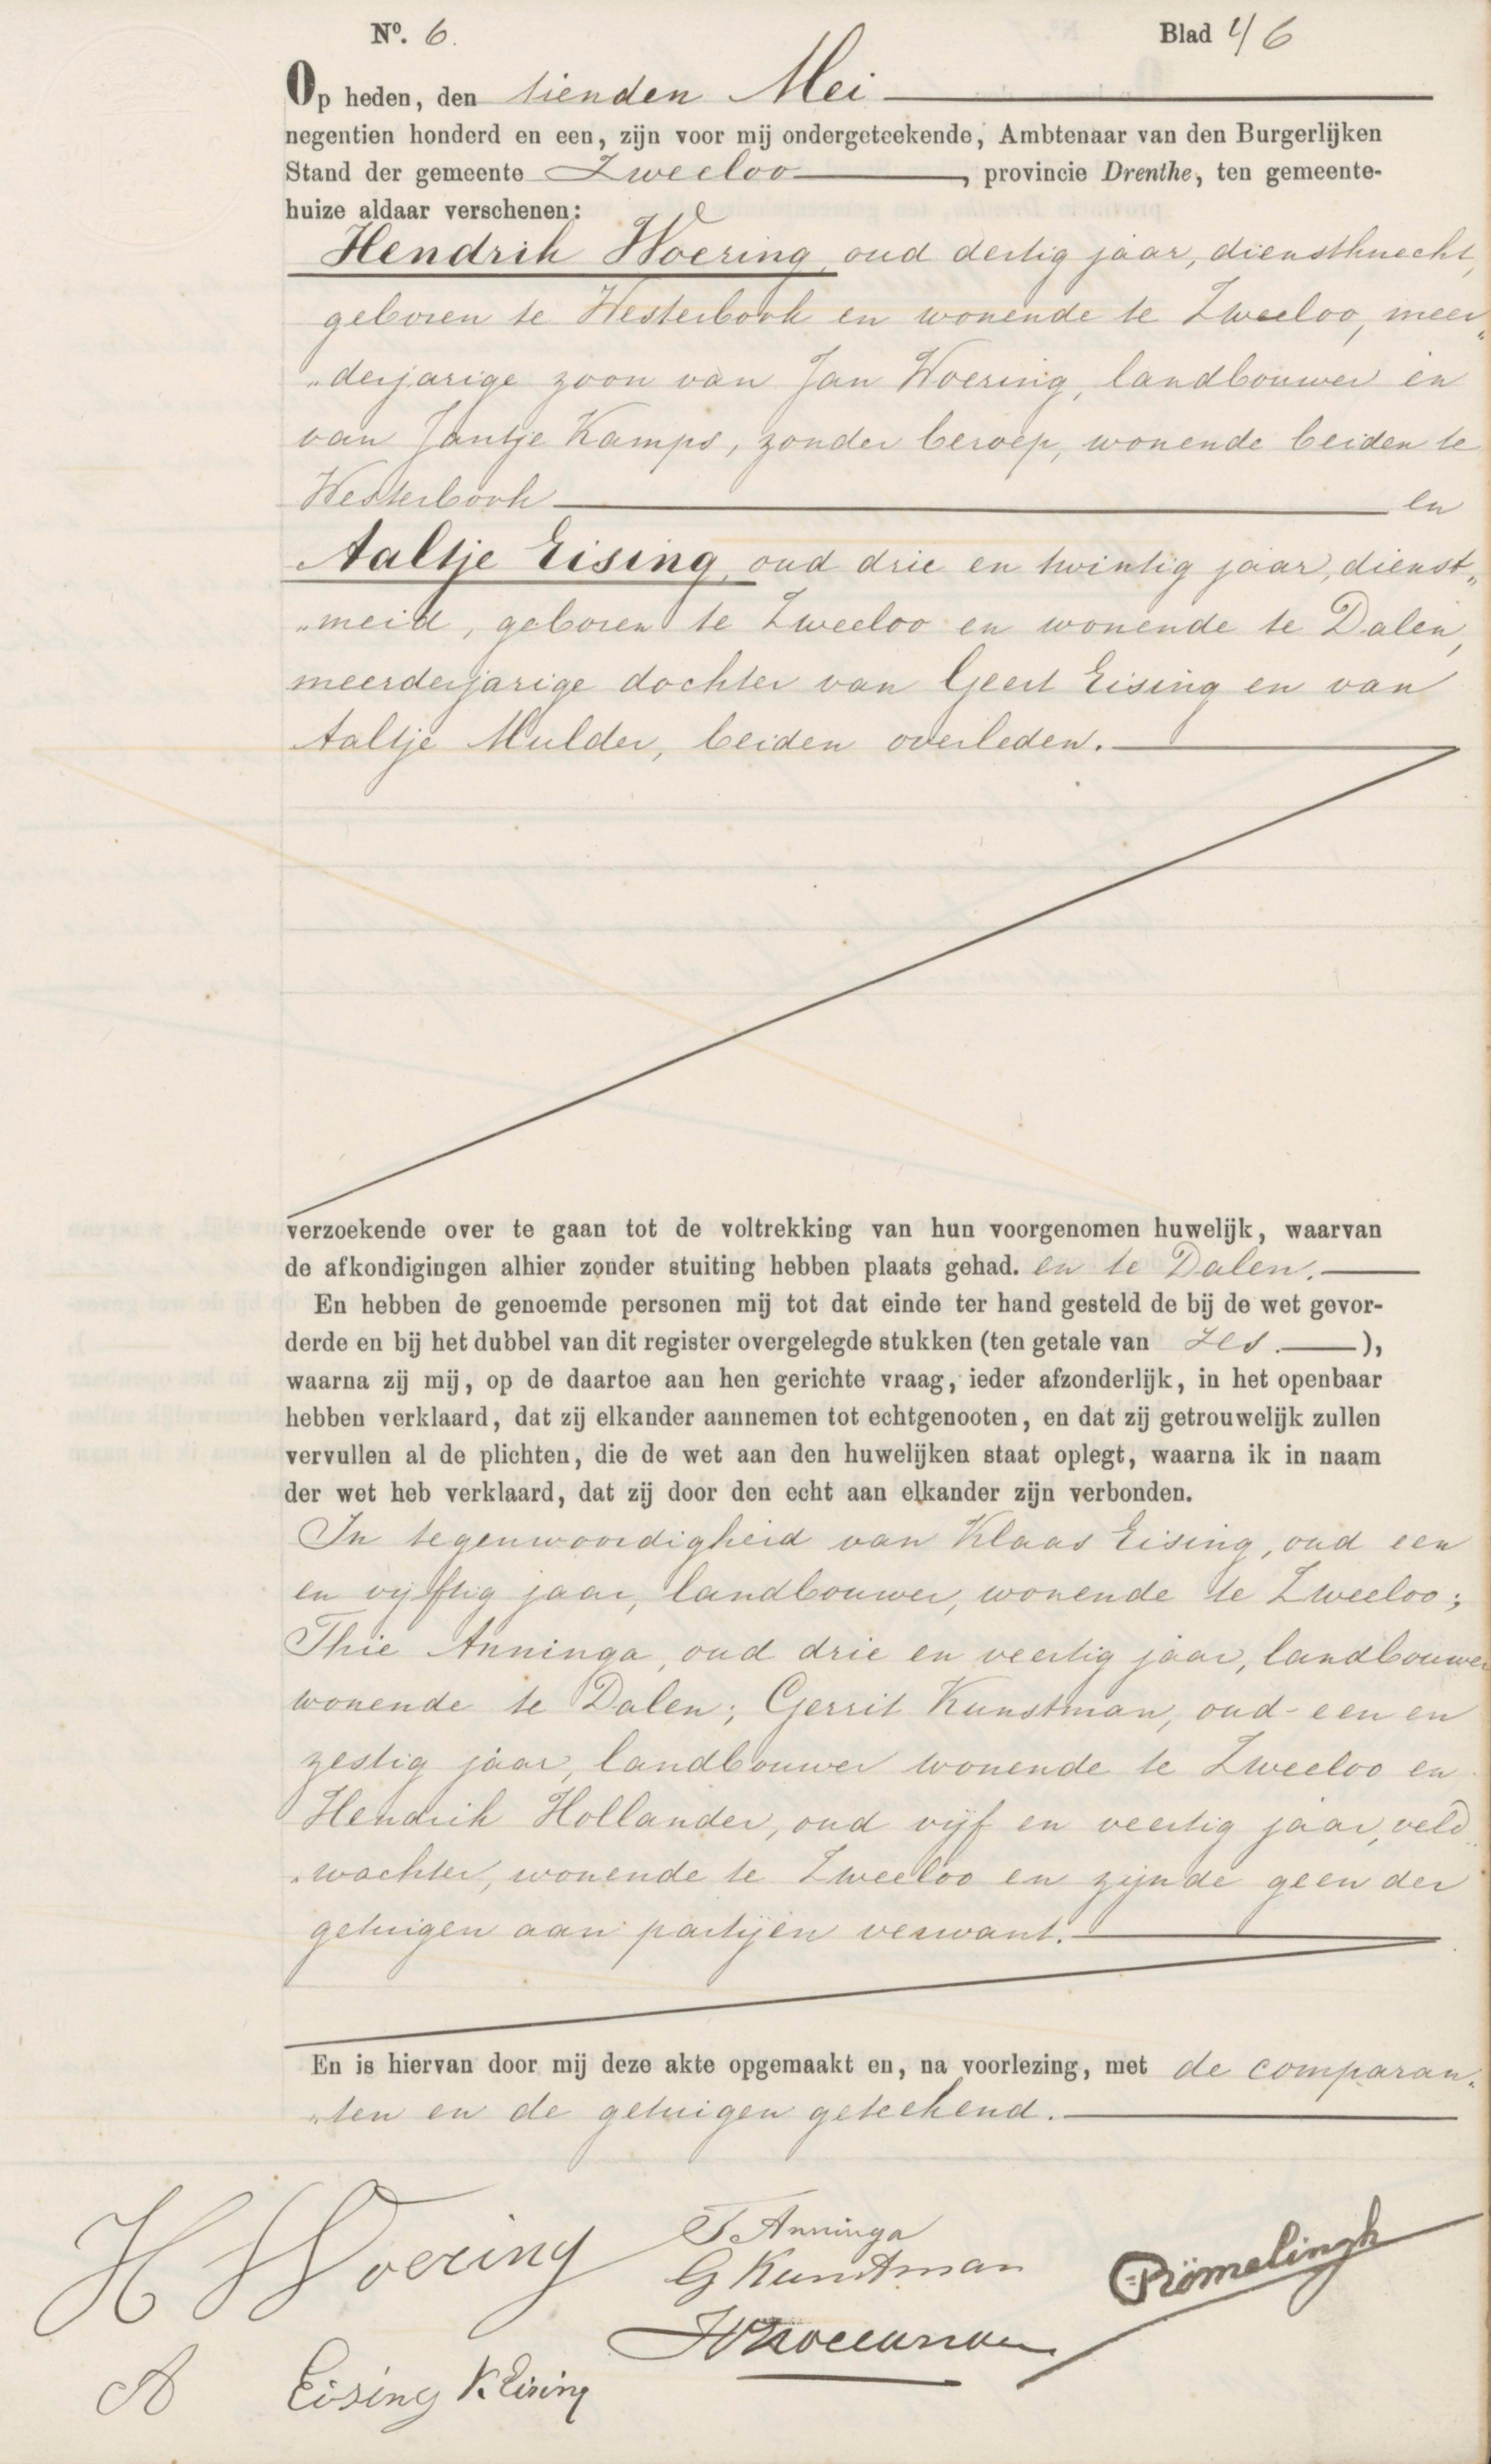 Nº. 6. Blad 4/6
Op heden, den tienden Mei
negentien honderd en een, zijn voor mij ondergeteekende, Ambtenaar van den Burgerlijken
Stand der gemeente Zweeloo, provincie Drenthe, ten gemeente-
huize aldaar verschenen:
Hendrik Woering, oud dertig jaar, dienstknecht,
geboren te Westerbork en wonende te Zweeloo, meer„
„derjarige zoon van Jan Woering, landbouwer en
van Jantje Kamps, zonder beroep, wonende beiden te
Westerbork en
Aaltje Eising, oud drie en twintig jaar, dienst„
„meid, geboren te Zweeloo en wonende te Dalen,
meerderjarige dochter van Geert Eising en van
Aaltje Mulder, beiden overleden.
verzoekende over te gaan tot de voltrekking van hun voorgenomen huwelijk, waarvan
de afkondigingen alhier zonder stuiting hebben plaats gehad. en te Dalen.
En hebben de genoemde personen mij tot dat einde ter hand gesteld de bij de wet gevor-
derde en bij het dubbel van dit register overgelegde stukken (ten getale van zes.),
waarna zij mij, op de daartoe aan hen gerichte vraag, ieder afzonderlijk, in het openbaar
hebben verklaard, dat zij elkander aannemen tot echtgenooten, en dat zij getrouwelijk zullen
vervullen al de plichten, die de wet aan den huwelijken staat oplegt, waarna ik in naam
der wet heb verklaard, dat zij door den echt aan elkander zijn verbonden.
In tegenwoordigheid van Klaas Eising, oud een
en vijftig jaar, landbouwer, wonende te Zweeloo;
Thie Anninga, oud drie en veertig jaar, landbouwer
wonende te Dalen; Gerrit Kunstman, oud een en
zestig jaar, landbouwer wonende te Zweeloo en
Hendrik Hollander, oud vijf en veertig jaar, veld„
„wachter, wonende te Zweeloo en zijnde geen der
getuigen aan partijen verwant.
En is hiervan door mij deze akte opgemaakt en, na voorlezing, met de comparan„
„ten en de getuigen geteekend.
H Woering
T. Anninga
G Kunstman
Römelingh
A Eising K. Eising